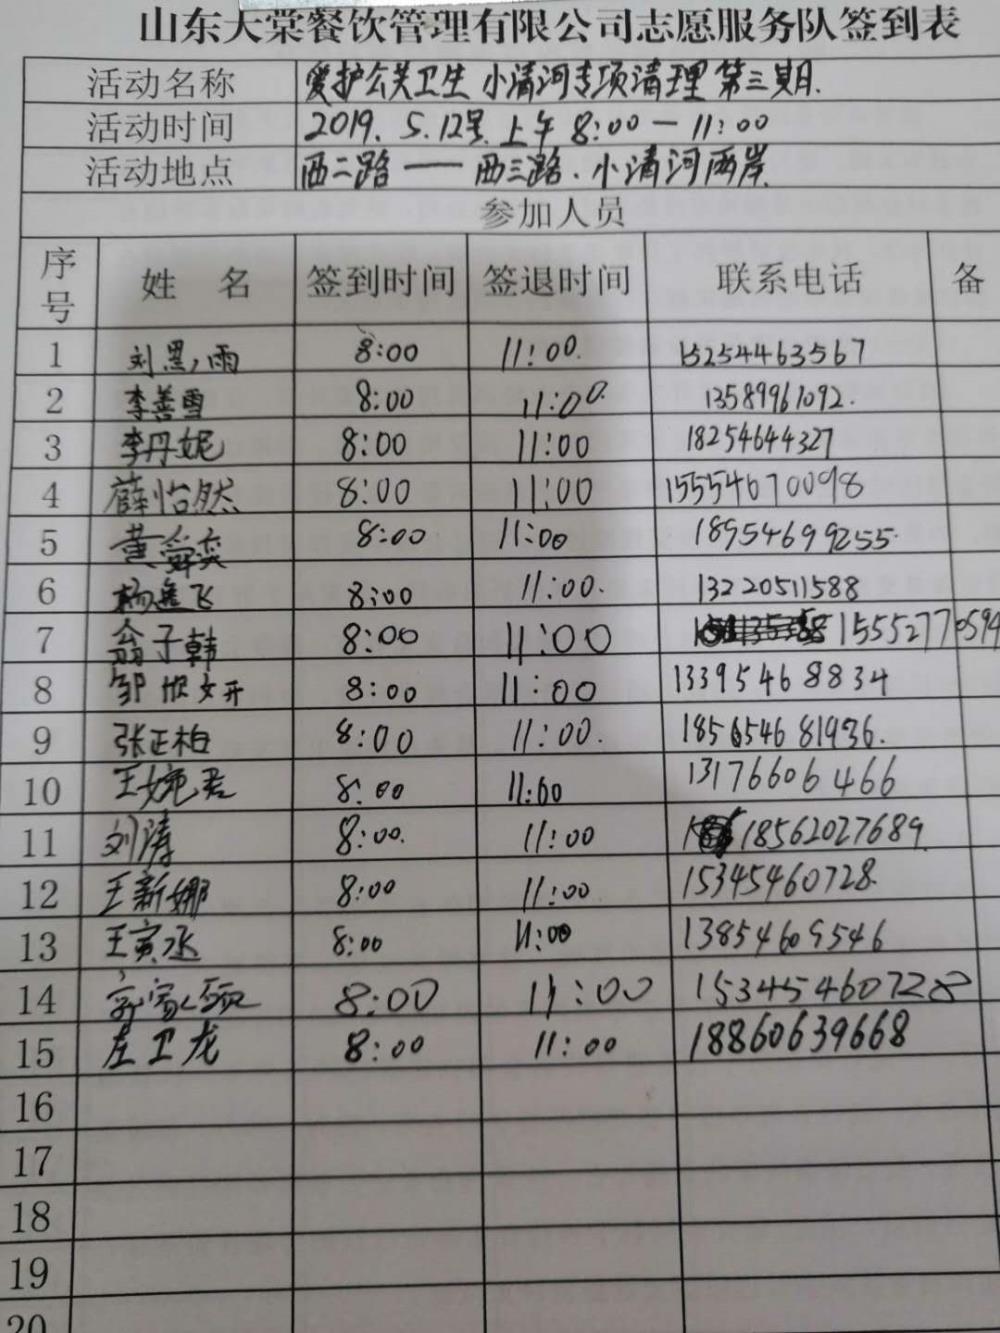 山东大棠餐饮管理有限公司志愿服务队签到表
活动名称 爱护公共卫生 小清河专项清理 第三期.
活动时间 2019. 5.12号 上午 8:00 — 11:00
活动地点 西二路 —— 西三路、小清河两岸
参加人员
序号 姓 名 签到时间 签退时间 联系电话 备
1 刘 雨 8:00 11:00. 15254463567
2 李善雪 8:00 11:00. 13589961092.
3 李丹妮 8:00 11:00 18254644327
4 薛怡然 8:00 11:00 15554670098
5 黄舜奕 8:00 11:00 18954699255.
6 杨逸飞 8:00 11:00. 13220511588
7 翁子韩 8:00 11:00 15552770594
8 邹欣妍 8:00 11:00 13395468834
9 张正柏 8:00 11:00. 185654681936.
10 王婉君 8:00 11:00 13176606466
11 刘涛 8:00. 11:00 18562027689
12 王新娜 8:00 11:00 15345460728.
13 王寅丞 8:00 11:00 13854609546
14 8:00 11:00 15345460728
15 左卫龙 8:00 11:00 18860639668
16
17
18
19
20